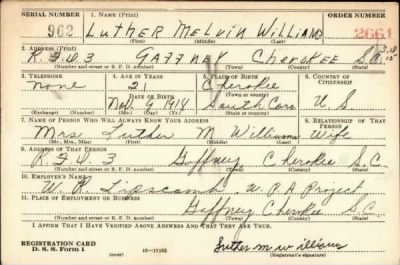 SERIAL NUMBER 1. NAME (Print) ORDER NUMBER
962 LUTHER MELVIN WILLIAMS 2661
(First) (Middle) (Last)
2. ADDRESS (Print)
R.F.D.3 GAFFNEY CHEROKEE
(Number and street or R. F. D. number) (Town) (County) (State)
3. TELEPHONE 4. AGE IN YEARS 5. PLACE OF BIRTH 6. COUNTRY OF CITIZENSHIP
none 21 Cherokee
DATE OF BIRTH (Town or county)
Nov. 9 1918 South Caro U S
(Exchange) (Number) (Mo.) (Day) (Yr.) (State or country)
7. NAME OF PERSON WHO WILL ALWAYS KNOW YOUR ADDRESS 8. RELATIONSHIP OF THAT PERSON
Mrs Luther M Williams Wife
(Mr., Mrs., Miss) (First) (Middle) (Last)
9. ADDRESS OF THAT PERSON
R.F.D.3 Gaffney Cherokee S.C.
(Number and street or R. F. D. number) (Town) (County) (State)
10. EMPLOYER'S NAME
W. R. Lipscomb. W.P.A Project
11. PLACE OF EMPLOYMENT OR BUSINESS
Gaffney Cherokee S.C.
(Number and street or R. F. D. number) (Town) (County) (State)
I AFFIRM THAT I HAVE VERIFIED ABOVE ANSWERS AND THAT THEY ARE TRUE.
REGISTRATION CARD
D. S. S. Form 1 (over) luther m williams
(Registrant's signature)